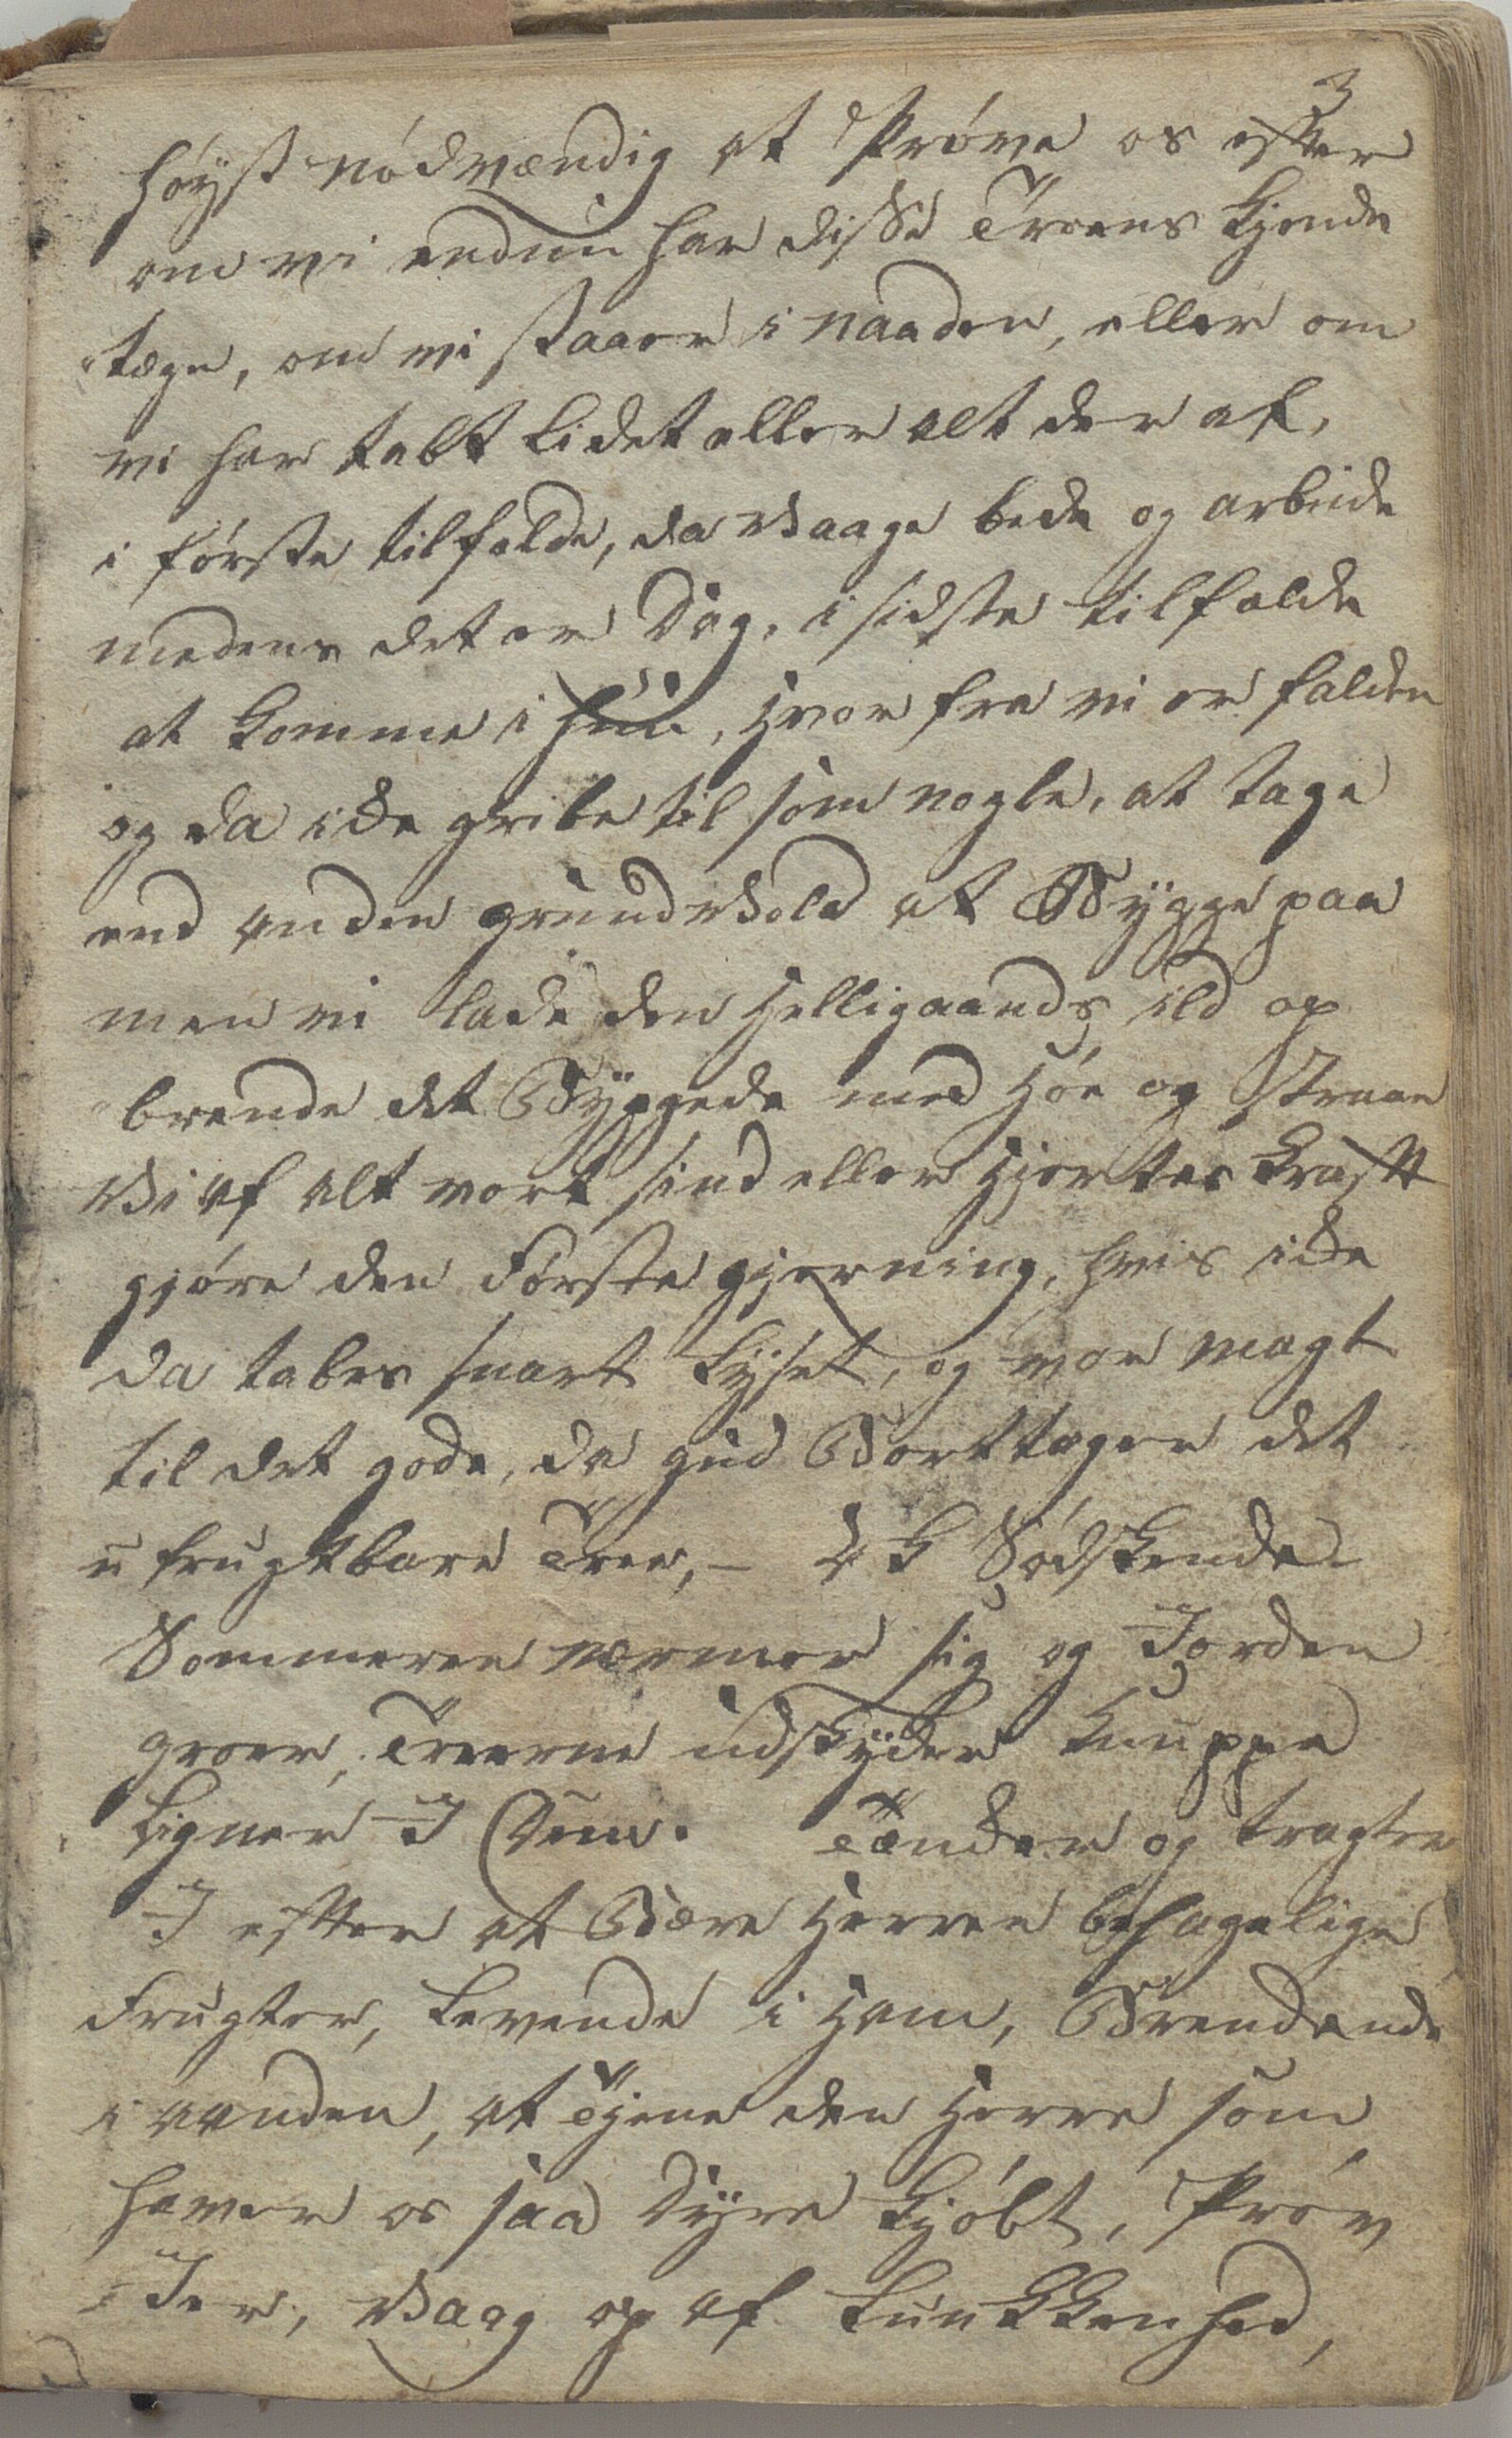 3
høyst nødvændig at Prøve os efter
om vi endnu har disse Troens kjende
tegn, om vi staaer i naaden, eller om
vi har tabt Lidet eller alt der af,
i første tilfælde, da Waage bede og arbeide
medens det er Dag, i sidste tilfælde
at komme i hu, hvor fra vi er falden
og da icke gribe til som nogle, at tage
end anden grundwold at Bygge paa
men vi lade den Helligaands ild op
brende det Byggede med Høe og Straae
Wi af alt vort sind eller Hjertes Kraft
gjøre den Første gjerning, hvis icke
da tabes snart Lyset, og vor magt
til det gode, da gud Borttager det
ufrugtbare Træe, – K Sødskende
Sommeren nærmer sig og Jorden
groer, Træerne udskyder Knuppe
Ligner I Dem. Tæncker og tragter
I efter at Bære Herren behagelige
Frugter, Levende i Ham, Brendende
i aanden, at Tjene den Herre som
haver os saa Dyre kjøbt, Prøv
Jer, Waag op af Lunckenhed,